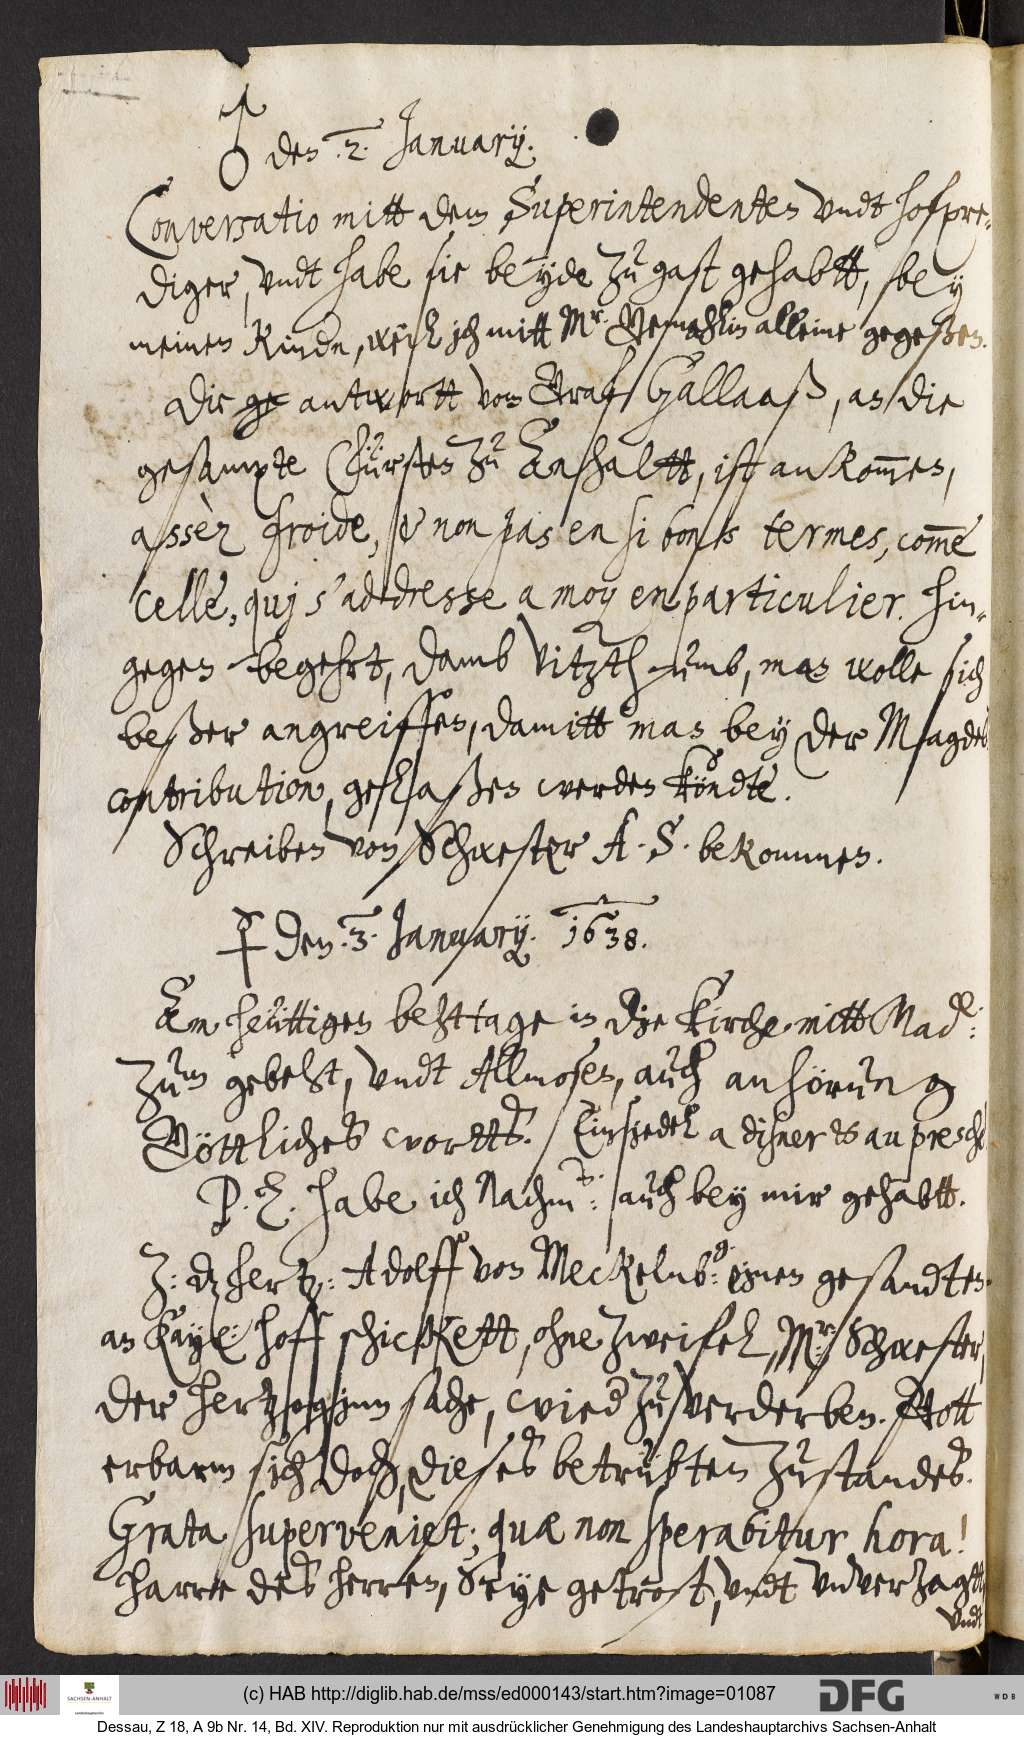 ♂ den .2. January.
Conversatio mitt dem Superintendenten undt hofpre-
diger, undt habe sie beyde zu gast gehabtt, bey
meinen Kindn, weil ich mitt Mr. Gemahlin alleine gegeßen.
Die ge antwortt von Graf Gallaaß, an die
gesampte Fürsten zu Anhaltt, ist ankom̄en,
assèz froide, & non pas en si bons termes, com̄e
celle, quj s'addresse a moy en particulier. Hin-
gegen begehrt, Damb Vitzthumb, man wolle sich
beßer angreiffen, damitt man bey der Magdeb
contribution, gelaßen werden köndte.
Schreiben von Schwester A. S. bekommen.
☿ den .3. January. 1638.
Am heüttigen behttage in die Kirche mitt Mad.:
zum gebeht, undt Allmosen, auch anhörung
Göttliches wortts. Einsiedel a disner &s au presche
P. E. habe ich Nachmts: auch bey mir gehabtt.
Z: dz hertz: Adolff von Meckelnb:g einen gesandten
an Kayß: hoff schickett, ohne zweifel, Mr: Schwester,
der hertzoginn sache, wied zu verderben. Gott
erbarm sich doch, dieses betrübten zustandes.
Grata superveniet; quæ non sperabitur hora!
harre des herren, Seye getrost, undt unverzagtt,
undt
(c) HAB http://diglib.hab.de/mss/ed000143/start.htm?image=01087
SACHSEN-ANHALT
DFG
WDB
Dessau, Z 18, A 9b Nr. 14, Bd. XIV. Reproduktion nur mit ausdrücklicher Genehmigung des Landeshauptarchivs Sachsen-Anhalt